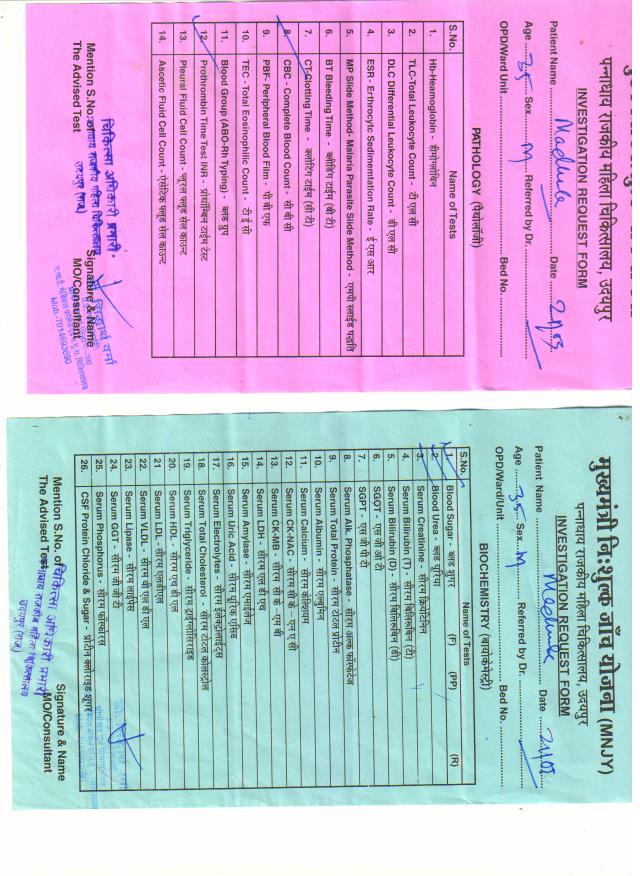 पन्नाधाय राजकीय महिला चिकित्सालय, उदयपुर
INVESTIGATION REQUEST FORM
Patient Name Madhule Date
Age 35 Sex. M Referred by Dr.
OPD/Ward Unit Bed No.
PATHOLOGY (पैथोलॉजी)
S.No. Name of Tests
1. Hb-Heamoglobin - हीमोग्लोबिन
2. TLC-Total Leukocyte Count - टी एल सी
3. DLC Differential Leukocyte Count - डी एल सी
4. ESR - Erthrocytc Sedimentation Rate - ई एस आर
5. MP Slide Method- Malaria Parasite Slide Method - एमपी स्लाईड पद्धति
6. BT Bleeding Time - ब्लीडिंग टाईम (बी टी)
7. CT-Clotting Time - क्लोटिंग टाईम (सी टी)
8. CBC - Complete Blood Count - सी बी सी
9. PBF- Peripheral Blood Film - पी बी एफ
10. TEC - Total Eosinophilic Count - टी ई सी
11. Blood Group (ABO-Rh Typing) - ब्लड ग्रुप
12. Prothrombin Time Test INR - प्रोथॉम्बिन टाईम टेस्ट
13. Pleural Fluid Cell Count - प्लूरल फ्लूड सेल काउन्ट
14. Ascetic Fluid Cell Count - ऐसेटिक फ्लूड सेल काउन्ट
चिकित्सा अधिकारी प्रभारी
पन्नाधाय राजकीय महिला चिकित्सालय
उदयपुर (राज.)
Mention S.No. of Signature & Name
The Advised Test MO/Consultant
Mob.-7014693690
मुख्यमंत्री नि:शुल्क जाँच योजना (MNJY)
पन्नाधाय राजकीय महिला चिकित्सालय, उदयपुर
INVESTIGATION REQUEST FORM
Patient Name Madhule Date
Age 35 Sex. M Referred by Dr.
OPD/Ward/Unit Bed No.
BIOCHEMISTRY (बायोकेमेस्ट्री)
S.No. Name of Tests
1. Blood Sugar - ब्लड शुगर (F) (PP) (R)
2. Blood Urea - ब्लड यूरिया
3. Serum Creatinine - सीरम क्रियेटिनिन
4. Serum Bilirubin (T) - सीरम बिलिरूबिन (टी)
5. Serum Bilirubin (D) - सीरम बिलिरूबिन (डी)
6. SGOT - एस जी ओ टी
7. SGPT - एस जी पी टी
8. Serum Alk. Phosphatase - सीरम अल्क फॉस्फेटेज
9. Serum Total Protein - सीरम टोटल प्रोटीन
10. Serum Albumin - सीरम एल्बुमिन
11. Serum Calcium - सीरम केल्शियम
12. Serum CK-NAC - सीरम सी के - एन ए सी
13. Serum CK-MB - सीरम सी के - एम बी
14. Serum LDH - सीरम एल डी एच
15. Serum Amylase - सीरम एमाईलेज
16. Serum Uric Acid - सीरम यूरिक एसिड
17. Serum Electrolytes - सीरम ईलेक्ट्रोलाईट्स
18. Serum Total Cholesterol - सीरम टोटल कोलस्ट्रोल
19. Serum Triglyceride - सीरम ट्राईग्लीसिराईड
20. Serum HDL - सीरम एच डी एल
21. Serum LDL - सीरम एलडीएल
22. Serum VLDL - सीरम वी एल डी एल
23. Serum Lipase - सीरम लाईपेस
24. Serum GGT - सीरम जी जी टी
25. Serum Phosphorus - सीरम फास्फोरस
26. CSF Protein Chloride & Sugar - प्रोटीन क्लोराइड शुगर
चिकित्सा अधिकारी प्रभारी
पन्नाधाय राजकीय महिला चिकित्सालय
उदयपुर (राज.)
Mention S.No. of Signature & Name
The Advised Test MO/Consultant